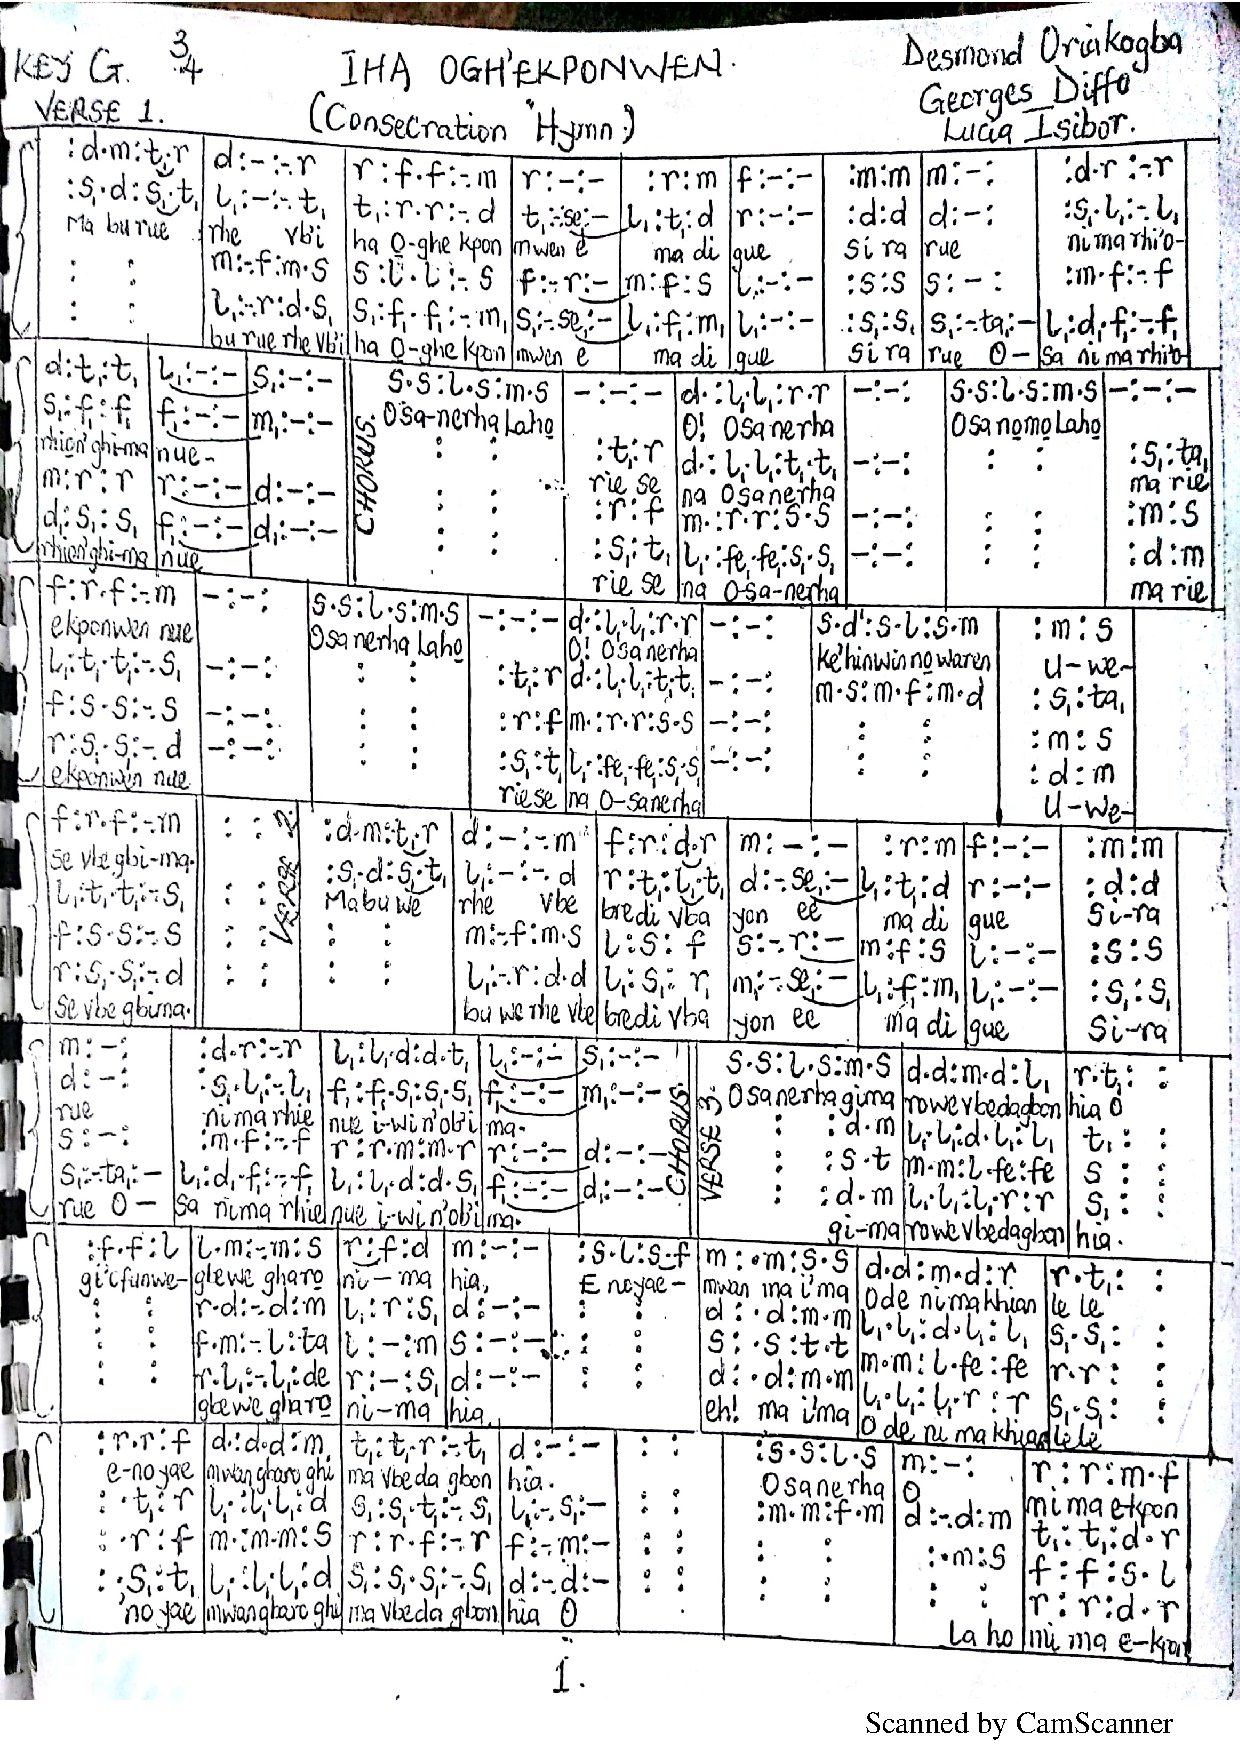 KEY G. 3/4 IHA OGH'EKPONWEN. Desmond Oriakogba
VERSE 1. (Consecration Hymn.) Georges Diffo
Lucia Isibor.
:d.m:t₁.r | d:-:-.r | r:f.f:-.m | r:-:- | :r:m | f:-:- | :m:m | m:-: | :d.r:-.r
:s₁.d:s₁.t₁ | l₁:-:-.t₁ | t₁:r.r:-.d | t₁:se₁:- | l₁:t₁:d | r:-:- | :d:d | d:-: | :s₁.l₁:-.l₁
Ma bu rue | rhe vb'i | ha O-ghe kpon | mwen e | ma di | gue | si ra | rue | ni ma rhi'o-
: : | m:-.f:m.s | s:l.l:-.s | f:-.r:- | m:f:s | l:-:- | :s:s | s:-: | :m.f:-.f
: : | l₁:-.r:d.s₁ | s₁:f₁.f₁:-.m₁ | s₁:-.se₁:- | l₁:f₁:m₁ | l₁:-:- | :s₁:s₁ | s₁:-.ta₁:- | l₁:d₁.f₁:-.f₁
bu rue rhe vb'i | ha O-ghe kpon | mwen e | ma di | gue | si ra | rue O- | sa ni ma rhi'o-
d:t₁:t₁ | l₁:-:- | s₁:-:- | CHORUS. | s.s:l.s:m.s | -:-:- | d.:l₁.l₁:r.r | -:-: | s.s:l.s:m.s | -:-:-
s₁:f₁:f₁ | f₁:-:- | m₁:-:- | Osa-nerha Laho | O! Osanerha | Osanomo Laho
rhion'ghi-ma | nue- | : : | :t₁:r | d.:l₁.l₁:t₁.t₁ | -:-: | : : | :s₁:ta₁
rie se | na Osanerha | ma rie
m:r:r | r:-:- | d:-:- | : : | :r:f | m.:r.r:s.s | -:-: | : : | :m:s
d₁:s₁:s₁ | f₁:-:- | d₁:-:- | : : | :s₁:t₁ | l₁.:fe₁.fe₁:s₁.s₁ | -:-: | : : | :d:m
rhion'ghi-ma | nue | rie se | na Osa-nerha | ma rie
f:r.f:-.m | -:-: | s.s:l.s:m.s | -:-:- | d.:l₁.l₁:r.r | -:-: | s.d':s.l:s.m | :m:s
ekponwen nue | Osanerha Laho | O! Osanerha | ke'hinwin no waren | u-we-
l₁:t₁.t₁:-.s₁ | -:-: | : : | :t₁:r | d.:l₁.l₁:t₁.t₁ | -:-: | m.s:m.f:m.d | :s₁:ta₁
f:s.s:-.s | -:-: | : : | :r:f | m.:r.r:s.s | -:-: | : : | :m:s
r:s₁.s₁:-.d | -:-: | : : | :s₁:t₁ | l₁.:fe₁.fe₁:s₁.s₁ | -:-: | : : | :d:m
ekponwen nue | rie se | na O-sanerha | u-we-
f:r.f:-.m | : : | VERSE 2. | :d.m:t₁.r | d:-:-.m | f:r:d.r | m:-:- | :r:m | f:-:- | :m:m
se vbe gbi-ma. | :s₁.d:s₁.t₁ | l₁:-:-.d | r:t₁:l₁.t₁ | d:-.se₁:- | l₁:t₁:d | r:-:- | :d:d
l₁:t₁.t₁:-.s₁ | : : | Ma bu we | rhe vbe | bredi vba | yon ee | ma di | gue | si-ra
f:s.s:-.s | : : | : : | m:-.f:m.s | l:s:f | s:-.r:- | m:f:s | l:-:- | :s:s
r:s₁.s₁:-.d | : : | : : | l₁:-.r:d.d | l₁:s₁:r₁ | m₁:-.se₁:- | l₁:f₁:m₁ | l₁:-:- | :s₁:s₁
se vbe gbima. | bu we rhe vbe | bredi vba | yon ee | ma di | gue | si-ra
m:-: | :d.r:-.r | l₁:l₁.d:d.t₁ | l₁:-:- | s₁:-:- | CHORUS. | VERSE 3. | s.s:l.s:m.s | d.d:m.d:l₁ | r.t₁: :
d:-: | :s₁.l₁:-.l₁ | f₁:f₁.s₁:s₁.s₁ | f₁:-:- | m₁:-:- | Osanerha gima | rowe vbedagbon | hia O
rue | ni ma rhie | nue i-win'ob'i | ma. | : :d.m | l₁.l₁:d.l₁:l₁ | t₁: :
s:-: | :m.f:-.f | r:r.m:m.r | r:-:- | d:-:- | : :s.t | m.m:l.fe:fe | s: :
s₁:-.ta₁:- | l₁:d₁.f₁:-.f₁ | l₁:l₁.d:d.s₁ | f₁:-:- | d₁:-:- | : :d.m | l₁.l₁:l₁.r:r | s₁: :
rue O- | sa ni ma rhie | nue i-win'ob'i | ma. | gi-ma | rowe vbedagbon | hia.
:f.f:l | l.m:-.m:s | r:f:d | m:-:- | :s.l:s.f | m:.m:s.s | d.d:m.d:r | r.t₁: :
gi'ofunwe- | gbewe gharo | ni-ma | hia, | E noyae- | mwan ma i'ma | O de ni makhian | le le
: : | r.d:-.d:m | l₁:r:s₁ | d:-:- | : : | d:.d:m.m | l₁.l₁:d.l₁:l₁ | s₁.s₁: :
: : | f.m:-.l:ta | l:-:m | s:-:- | : : | s:.s:t.t | m.m:l.fe:fe | r.r: :
: : | r.l₁:-.l₁:de | r:-:s₁ | d:-:- | : : | d:.d:m.m | l₁.l₁:l₁.r:r | s₁.s₁: :
gbewe gharo | ni-ma | hia. | eh! ma i'ma | O de ni makhian | le le
:r.r:f | d.:d.d:m | t₁:t₁.r:-.t₁ | d:-:- | : : | :s.s:l.s | m:-: | r:r:m.f
e-no yae | mwan gharo ghi | ma vbeda gbon | hia. | Osanerha | O | ni ma e-kpon
:.t₁:r | l₁.:l₁.l₁:d | s₁:s₁.t₁:-.s₁ | l₁:-.s₁:- | : : | :m.m:f.m | d:-.d:m | t₁:t₁:d.r
:.r:f | m.:m.m:s | r:r.f:-.r | f:-.m:- | : : | : : | :.m:s | f:f:s.l
:.s₁:t₁ | l₁.:l₁.l₁:d | s₁:s₁.s₁:-.s₁ | d:-.d:- | : : | : : | : : | r:r:d.r
'no yae | mwan gbaro ghi | ma vbeda gbon | hia O | La ho | ni ma e-kpon
1.
Scanned by CamScanner